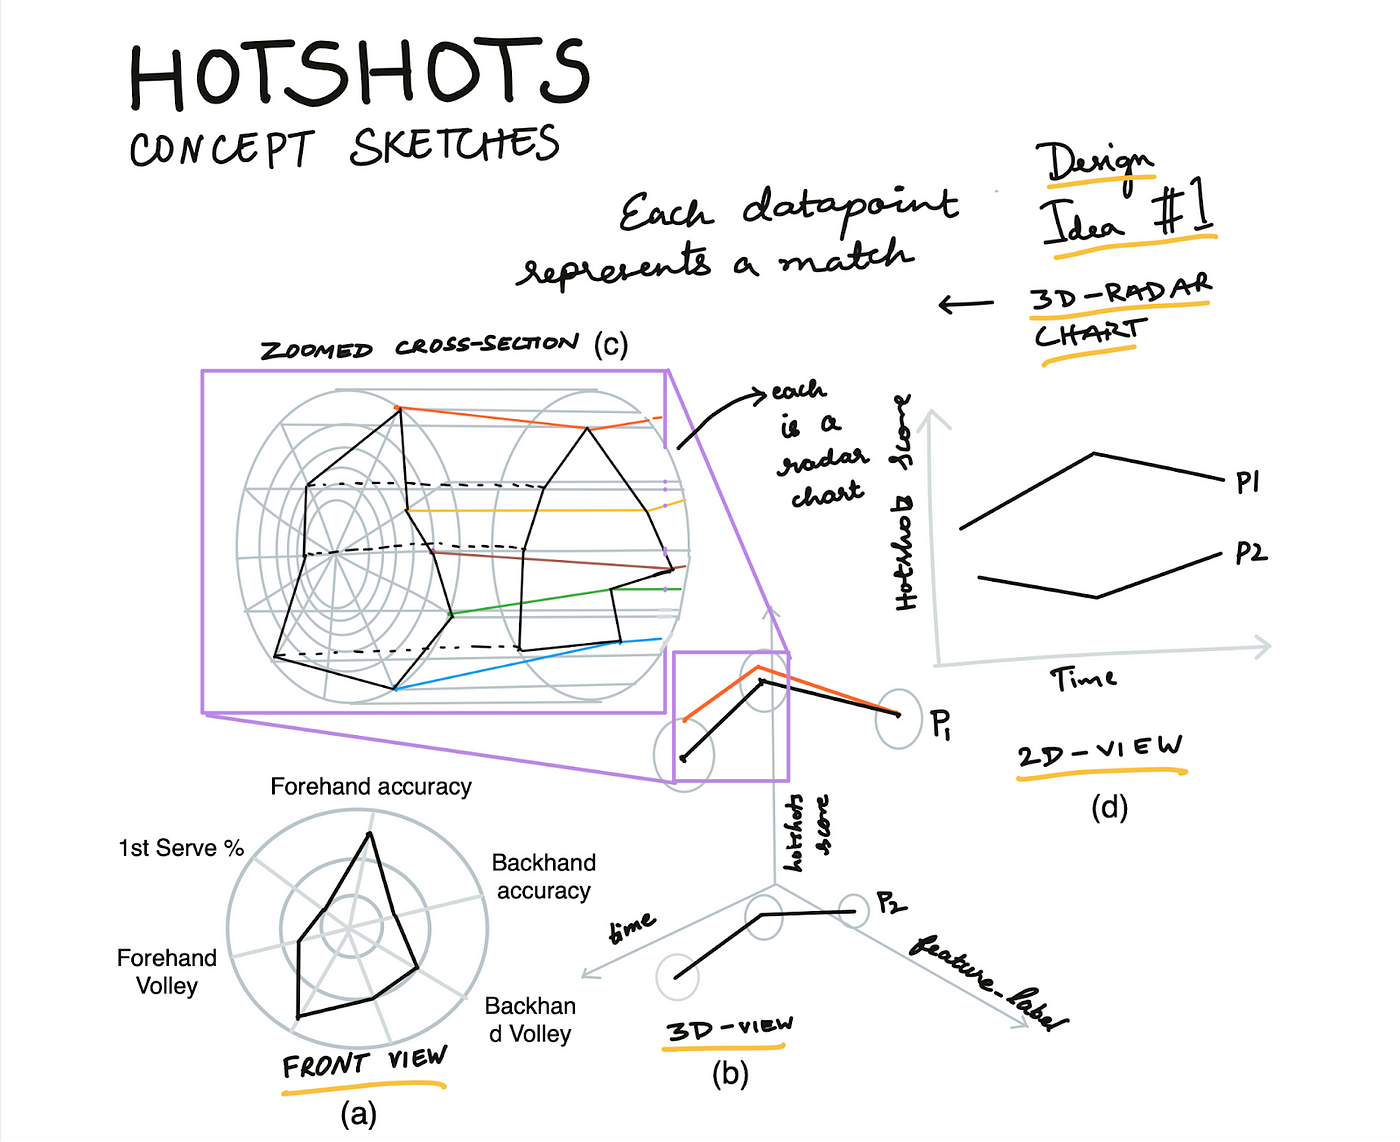 HOTSHOTS
CONCEPT SKETCHES
Design
Idea #1
3D-RADAR
CHART
Each datapoint
represents a match
ZOOMED CROSS-SECTION (c)
each
is a
radar
chart
Hotshot Score
P1
P2
Time
2D-VIEW
(d)
P1
hotshots
score
time
P2
feature-label
3D-VIEW
(b)
Forehand accuracy
1st Serve %
Backhand
accuracy
Forehand
Volley
Backhan
d Volley
FRONT VIEW
(a)